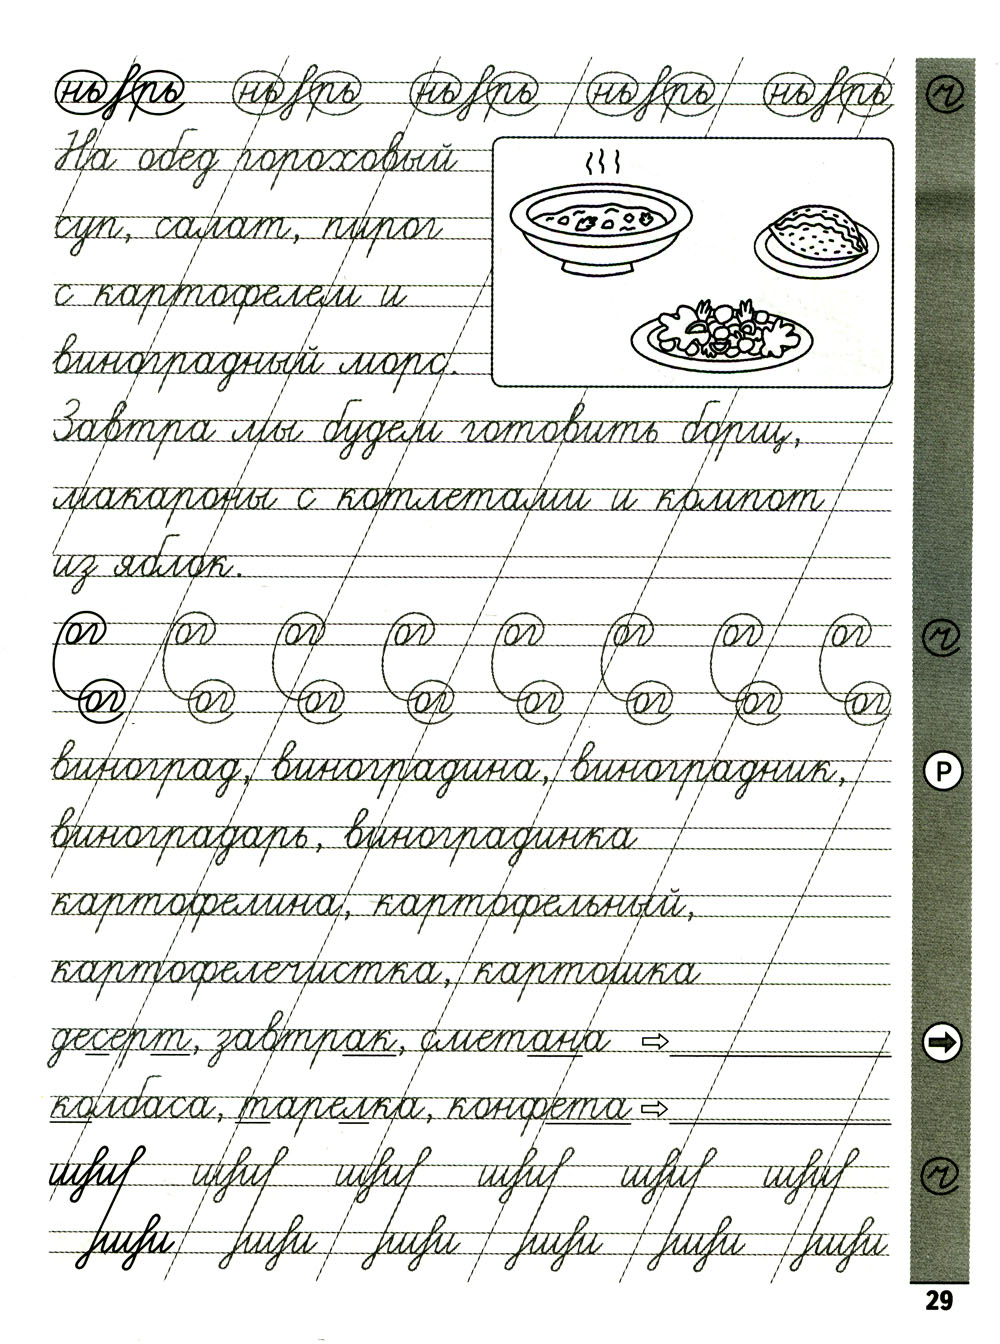 нь рь нь рь нь рь нь рь нь рь
На обед гороховый
суп, салат, пирог
с картофелем и
виноградный морс.
Завтра мы будем готовить борщ,
макароны с котлетами и компот
из яблок.
ог ог ог ог ог ог ог ог
ог ог ог ог ог ог ог ог
виноград, виноградина, виноградник,
Р
виноградарь, виноградинка
картофелина, картофельный,
картофелечистка, картошка
десерт, завтрак, сметана ⇨
колбаса, тарелка, конфета ⇨
29